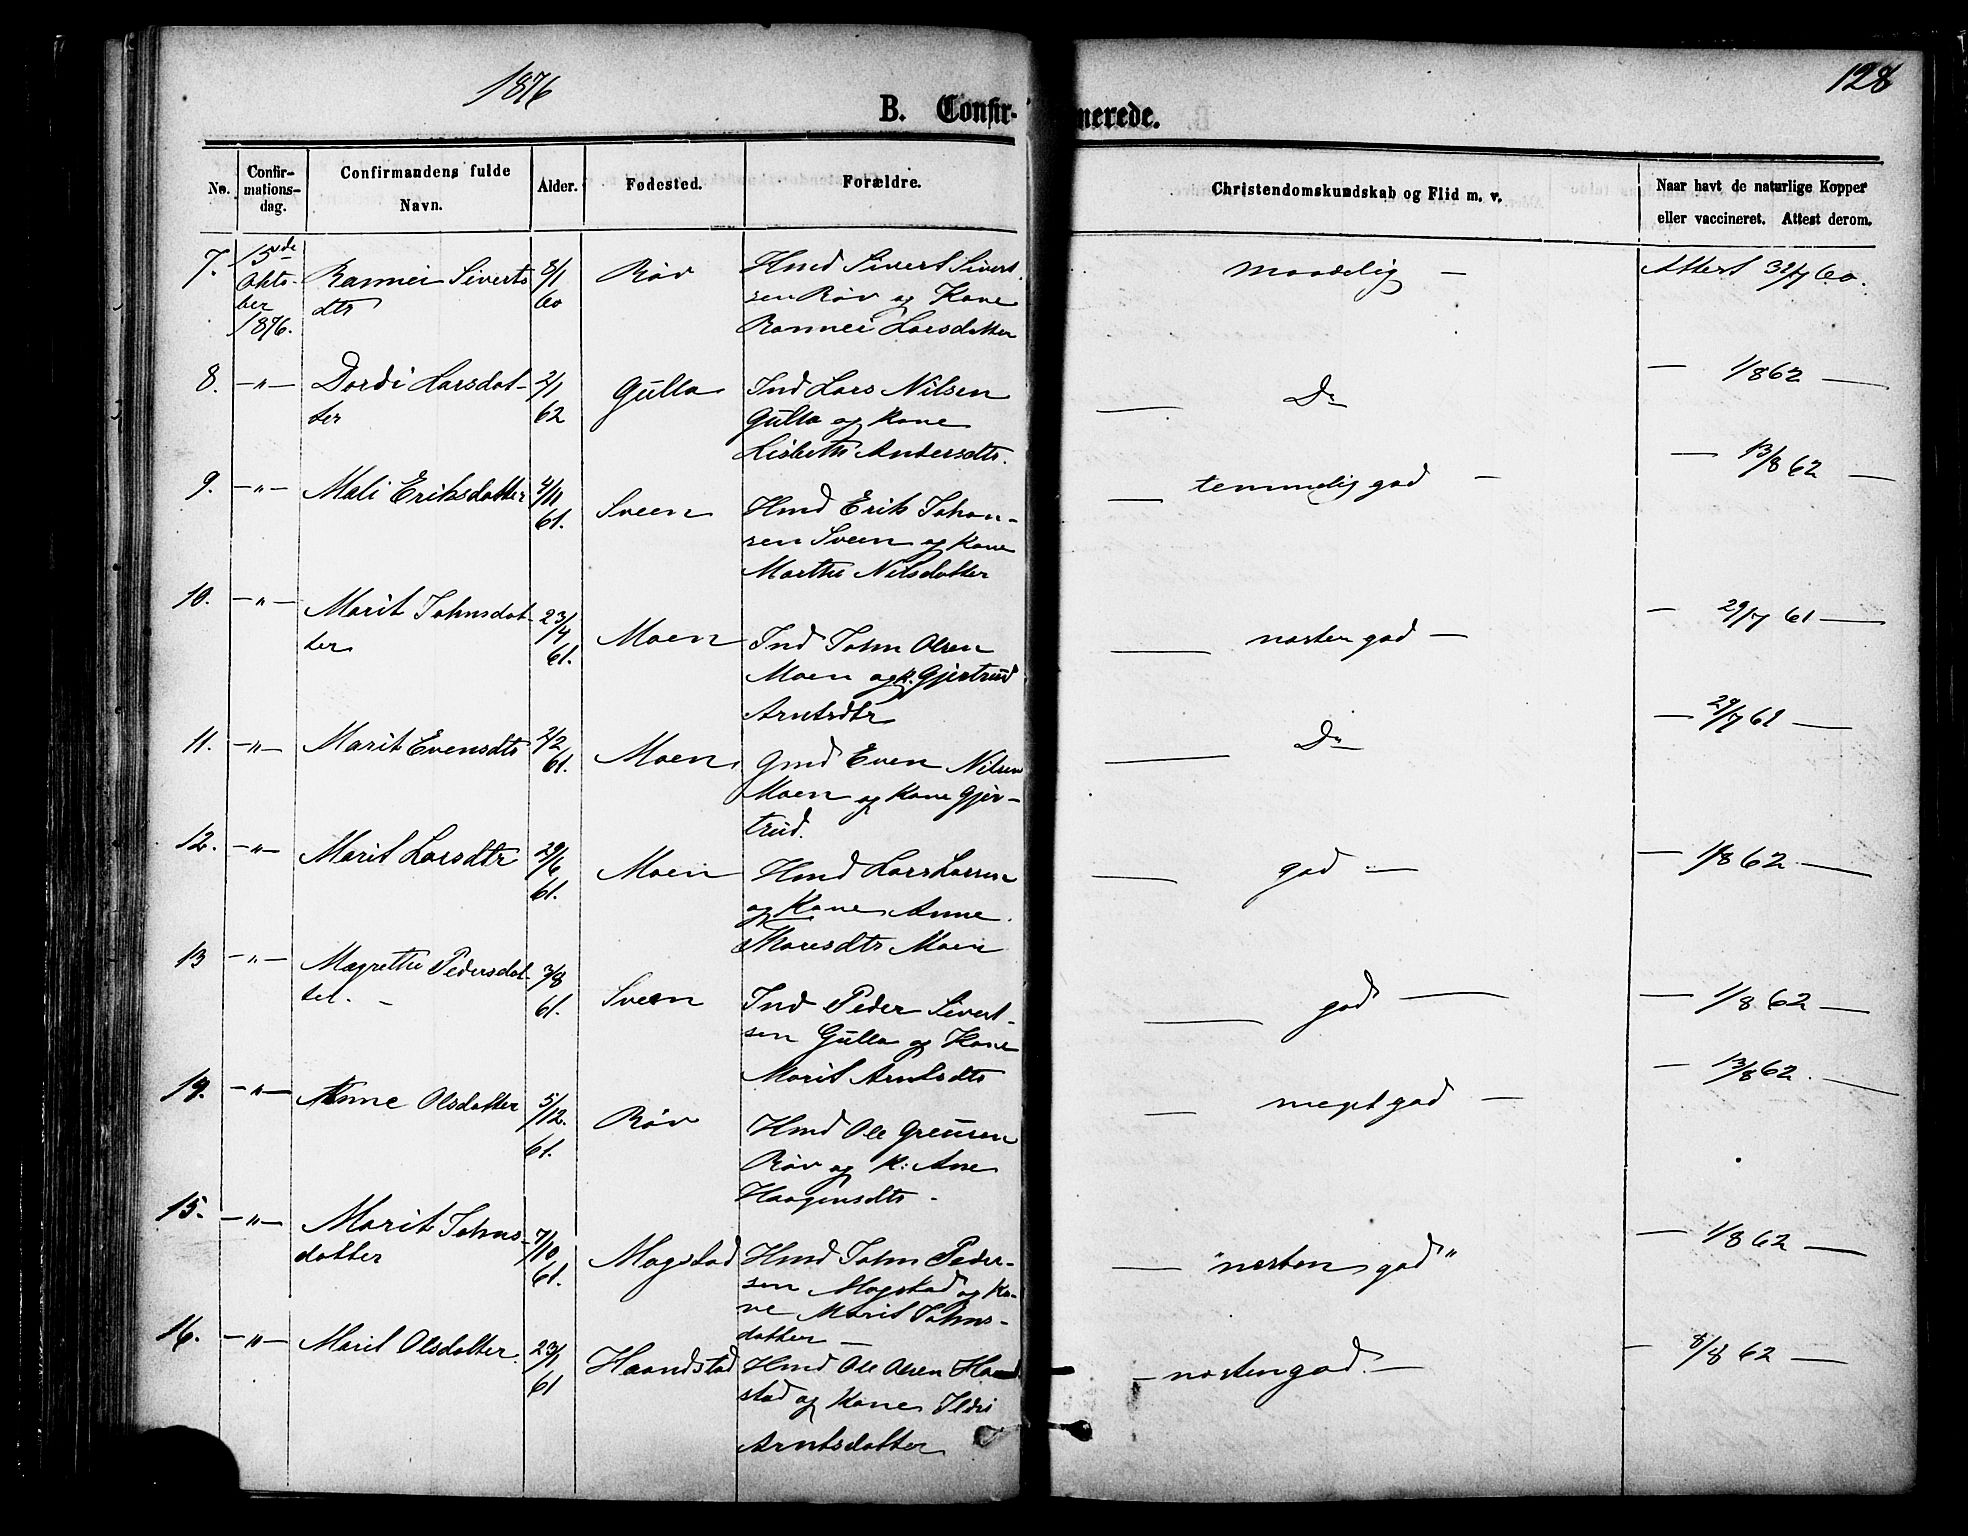 1876
128
B. Confir-merede.
No.
Confir-
mations-
dag.
Confirmandens fulde
Navn.
Alder.
Fødested.
Forældre.
Christendomskundskab og Flid m. v.
Naar havt de naturlige Kopper
eller vaccineret. Attest derom.
7. 15de Okto-
ber
1876.
Rannei Siverts
dtr
8/1
60
Røv
Hmd Sivert Sivert
sen Røv og Kone
Rannei Larsdatter
maadelig —
Attest 60.
8. —"— Dordi Larsdat-
ter
2/1
62
Gulla
Ind Lars Nilsen
Gulla og Kone
Lisbeth Andersdtr.
— Do
— 1/8 62 —
9. —"— Mali Eriksdatter
4/11
61.
Sveen
Hmd Erik Johan-
sen Sveen og Kone
Marthe Nilsdatter
— temmelig god —
— 13/8 62 —
10. —"— Marit Johnsdat-
ter
23/4
61.
Moen
Ind John Olsen
Moen og K. Gjertrud
Arntsdtr
— næsten god —
— 29/7 61 —
11. —"— Marit Evensdtr
2/2
61.
Moen
Gmd Even Nilsen
Moen og Kone Gjer-
trud.
— Do
— 29/7 61 —
12. —"— Marit Larsdtr
29/6
61.
Moen
Hmd Lars Larsen
og Kone Anne
Moen
— god —
— 1/8 62 —
13 —"— Magrethe Pedersdat-
ter. —
3/8
61.
Sveen
Ind Peder Sivert-
sen Gulla og Kone
Marit Arntsdtr
— god —
— 1/8 62 —
14. —"— Anne Olsdatter
5/12.
61.
Røv
Hmd Ole
Røv og K: Ane
Haagensdtr.
— meget god —
— 13/8 62. —
15. —"— Marit Johns-
datter
7/10
61.
Mogstad
Hmd John Peder-
sen Mogstad og Ko-
ne Marit Johns-
datter —
— "næsten god"
— 1/8 62 —
16. —"— Marit Olsdatter.
23/1
61
Haandstad
Hmd Ole Olsen
stad og Kone Ildri
Arntsdatter
— næsten god. —
— 8/8 62 —